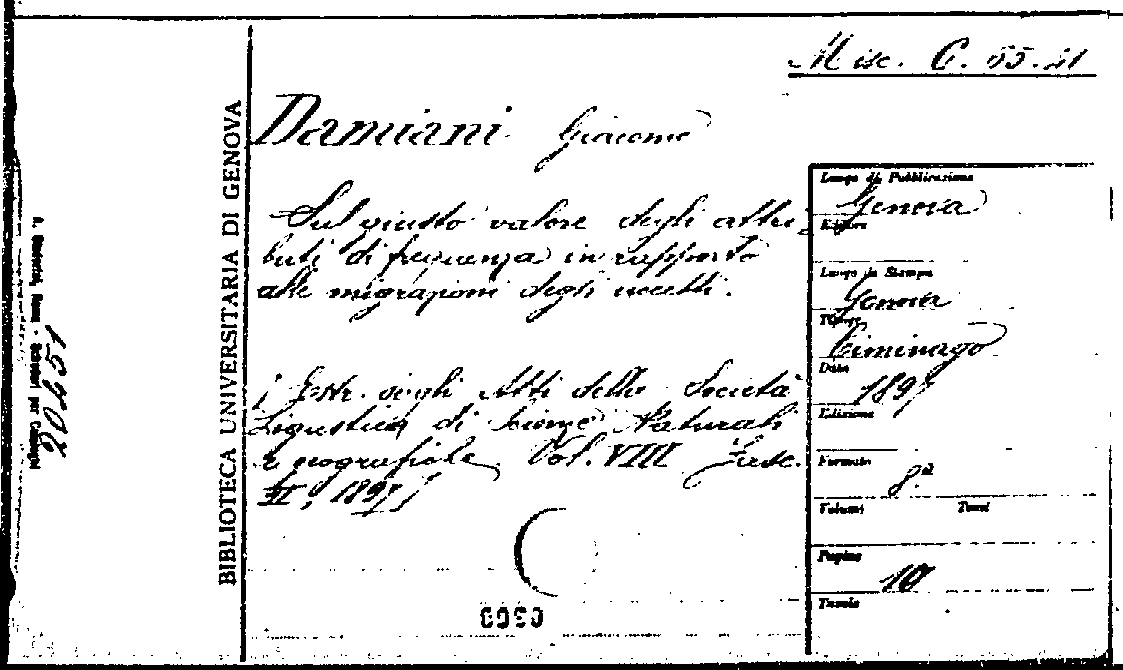 Misc. C. 55.21
BIBLIOTECA UNIVERSITARIA DI GENOVA
Damiani Giacomo
Sul giusto valore degli attri-
buti di frequenza in rapporto
alle migrazioni degli uccelli.
(Estr. degli Atti della Società
Ligustica di Scienze Naturali
e geografiche, Vol. VIII Fasc.
II, 1897)
Luogo di Pubblicazione
Genova
Editore
Luogo di Stampa
Genova
Tipogr.
Ciminago
Data
1897
Edizione
Formato
8º
Volumi Tomi
Pagine
10
Tavole